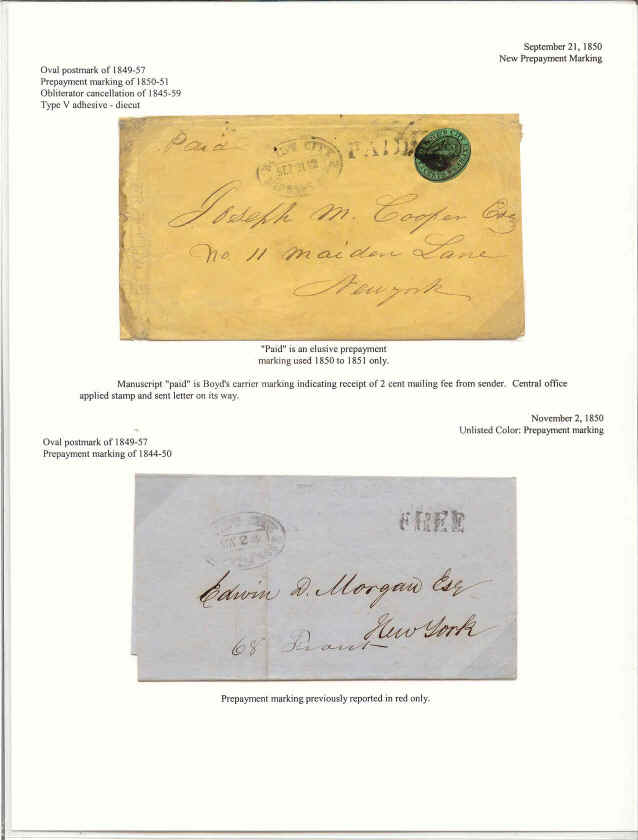 September 21, 1850
New Prepayment Marking
Oval postmark of 1849-57
Prepayment marking of 1850-51
Obliterator cancellation of 1845-59
Type V adhesive - diecut
Paid
PAID
SEP 21
Joseph M. Cooper Esq
No. 11 maiden Lane
Newyork
"Paid" is an elusive prepayment
marking used 1850 to 1851 only.
Manuscript "paid" is Boyd's carrier marking indicating receipt of 2 cent mailing fee from sender. Central office
applied stamp and sent letter on its way.
November 2, 1850
Unlisted Color: Prepayment marking
Oval postmark of 1849-57
Prepayment marking of 1844-50
FREE
Edwin D. Morgan Esq
New York
68 Front
Prepayment marking previously reported in red only.